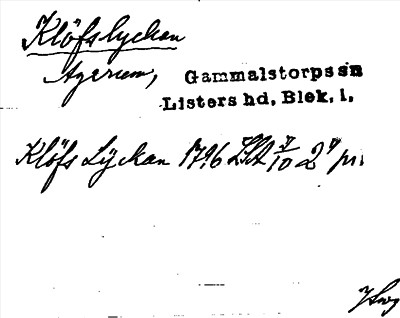 Klöfslyckan
Agerum, Gammalstorps sn
Listers hd, Blek. l.
Klöfs Lÿckan 1796 LSA 10 2 pr.